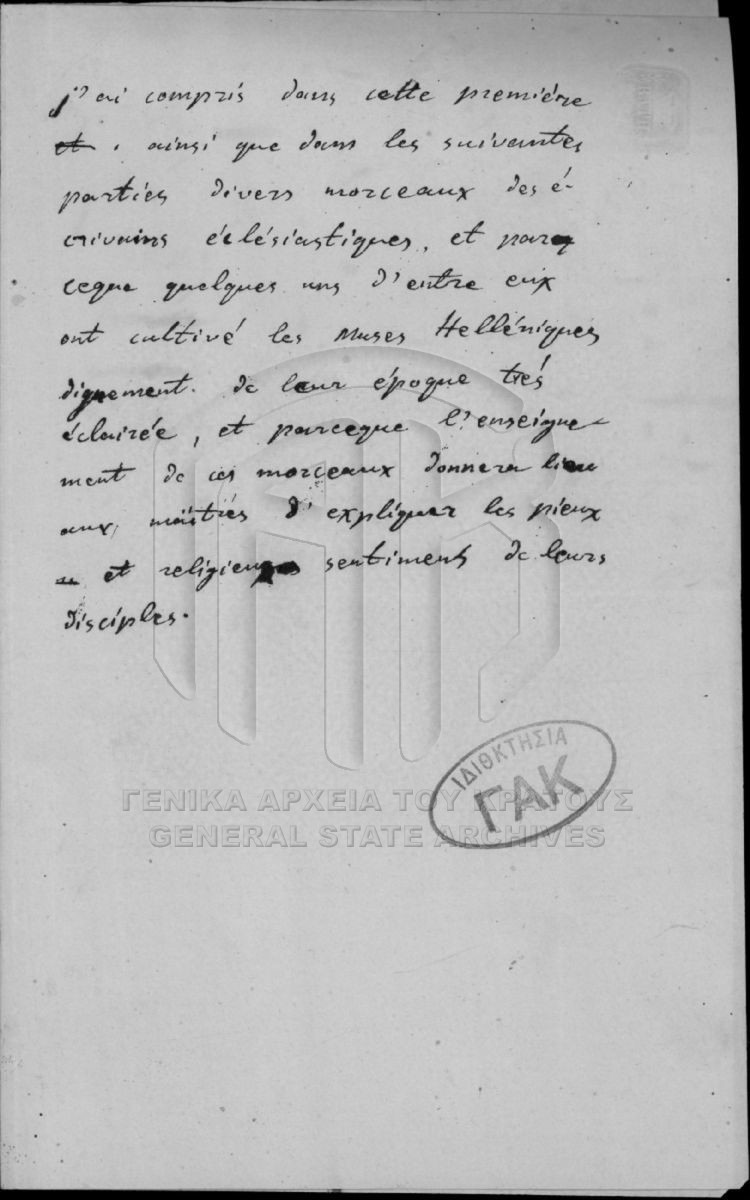 j'ai compris dans cette première
et, ainsi que dans les suivantes
parties divers morceaux des é-
crivains éclésiastiques, et par
ceque quelques uns d'entre eux
ont cultivé les Muses Helléniques
dignement de leur époque trés
éclairée, et parceque l'enseigne-
ment de ces morceaux donnera lieu
aux maïtres d'expliquer les pieux
et religieux sentiments de leurs
disciples.
ΙΔΙΟΚΤΗΣΙΑ
ΓΑΚ
ΓΕΝΙΚΑ ΑΡΧΕΙΑ ΤΟΥ ΚΡΑΤΟΥΣ
GENERAL STATE ARCHIVES